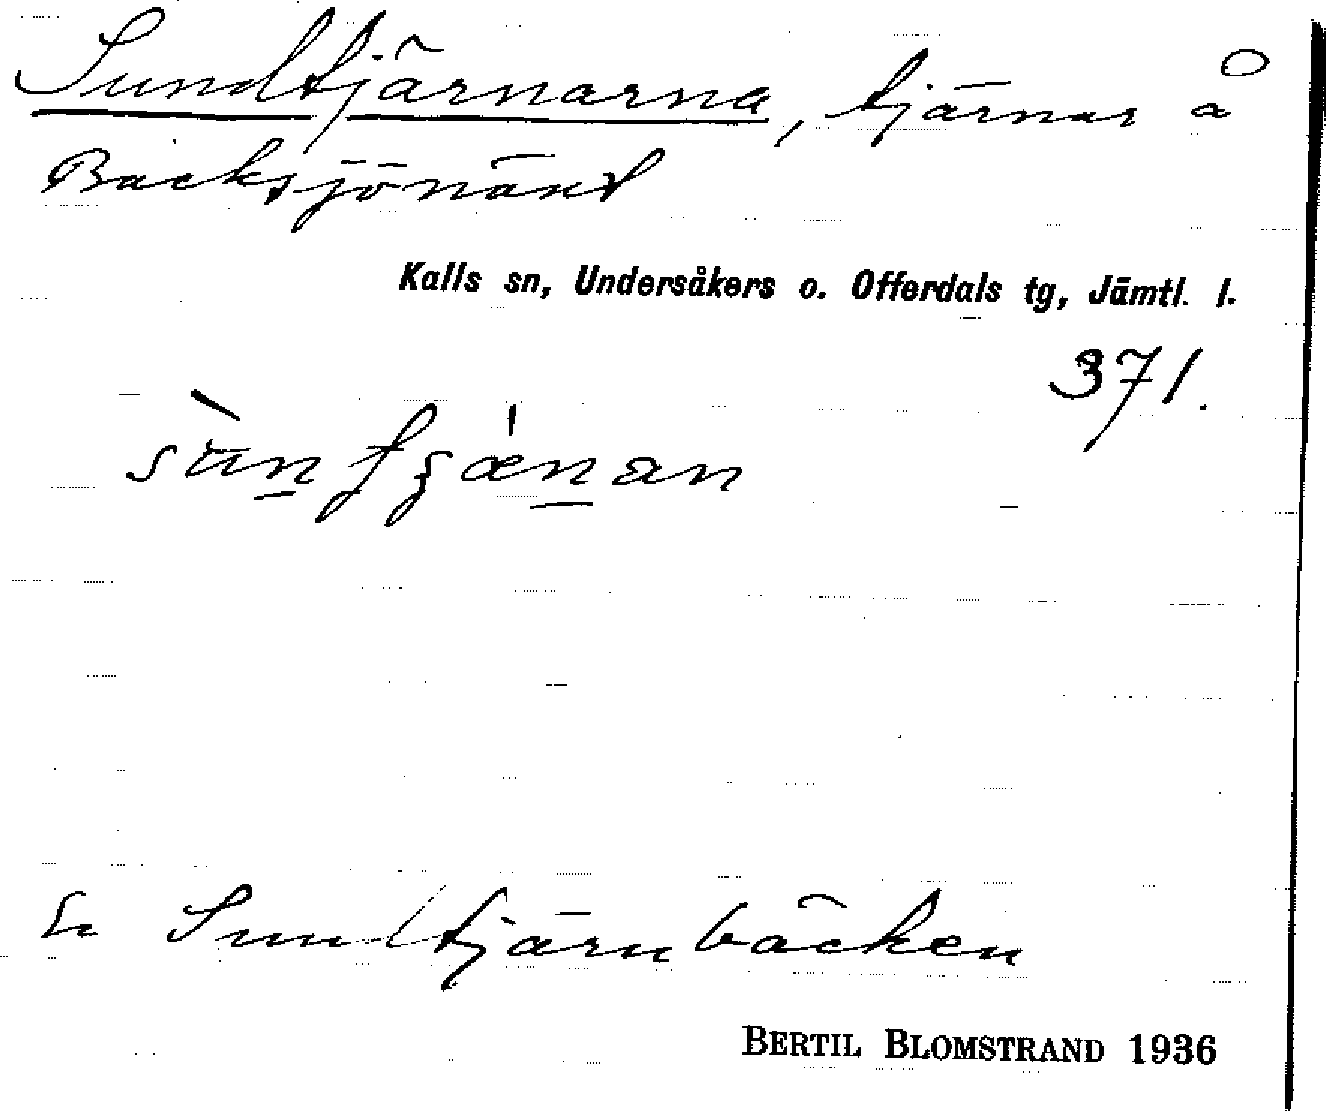 Sundtjärnarna, tjärnar å
Backsjönäset
Kalls sn, Undersåkers o. Offerdals tg, Jämtl. l.
371.
Se Sundtjärnbäcken
BERTIL BLOMSTRAND 1936